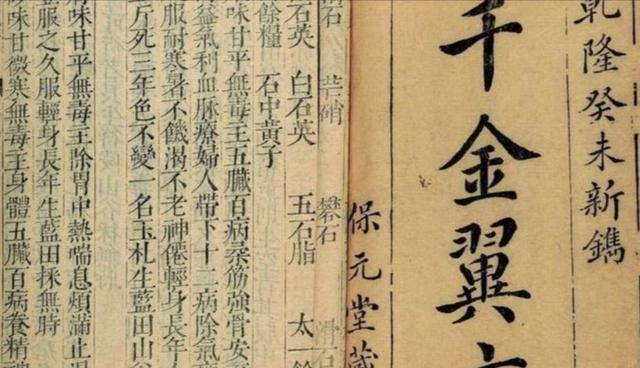 乾隆癸未新鐫
千金翼
保元堂藏
石 芒硝 礬石 滑石
石英 白石英 五石脂 太一餘
餘糧 石中黃子
味甘平無毒主五臟百病柔筋強骨安
益氣利血脉療婦人帶下十二病除氣
服耐寒暑不饑渴不老神僊輕身長年
斤死三年色不變一名玉札生藍田山
味甘平無毒主除胃中熱喘息煩滿止
服之久服輕身長年生藍田採無時
味甘微寒無毒主身體五臟百病養精